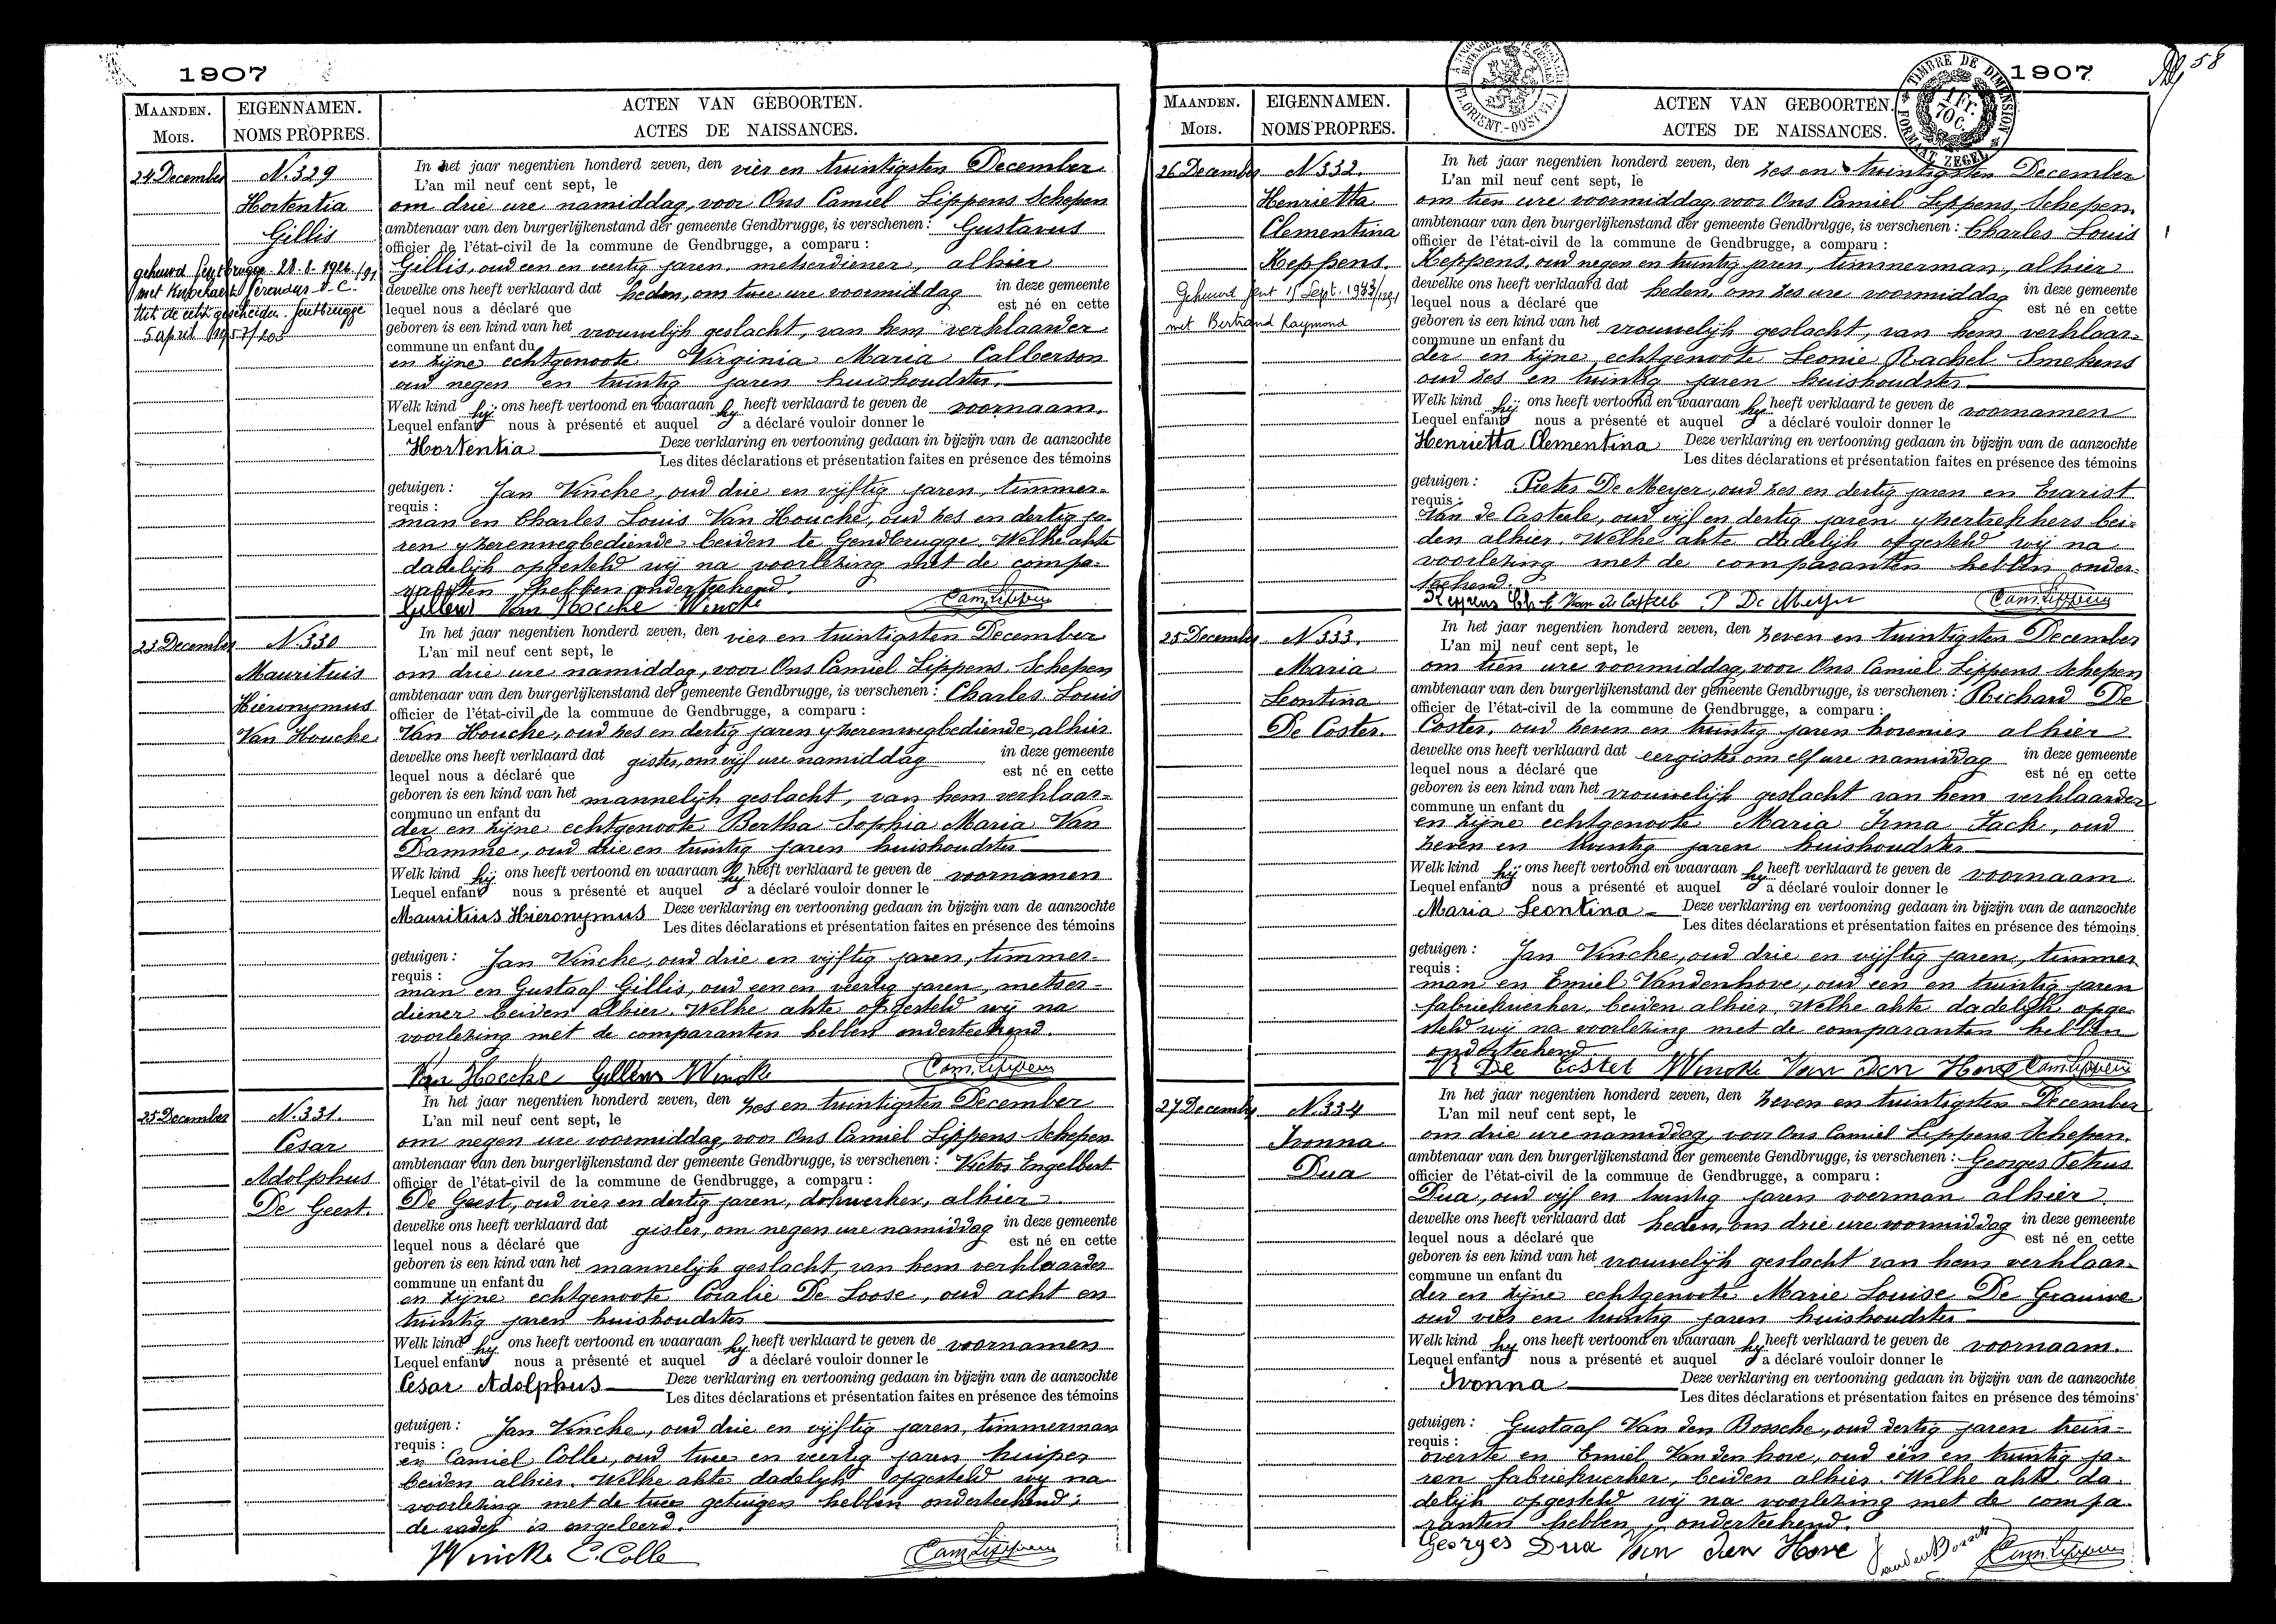 1907
MAANDEN.
Mois.
EIGENNAMEN.
NOMS PROPRES.
ACTEN VAN GEBOORTEN.
ACTES DE NAISSANCES.
24 December
N. 329
Hortentia
Gillis
gehuwd Gentbrugge 28.8.1926
met
Uit de echt gescheiden Gentbrugge
5 april 1957/
In het jaar negentien honderd zeven, den vier en twintigsten December
L'an mil neuf cent sept, le
om drie ure namiddag, voor Ons Camiel Lippens Schepen
ambtenaar van den burgerlijkenstand der gemeente Gendbrugge, is verschenen: Gustavus
officier de l'état-civil de la commune de Gendbrugge, a comparu :
Gillis, oud een en veertig jaren, metserdiener, alhier
dewelke ons heeft verklaard dat heden, om twee ure voormiddag in deze gemeente
lequel nous a déclaré que est né en cette
geboren is een kind van het vrouwelijk geslacht, van hem verklaarder
commune un enfant du
en zijne echtgenoote Virginia Maria Calberson
oud negen en twintig jaren huishoudster.
Welk kind hij ons heeft vertoond en waaraan hij heeft verklaard te geven de voornaam.
Lequel enfant nous à présenté et auquel a déclaré vouloir donner le
Hortentia Deze verklaring en vertooning gedaan in bijzijn van de aanzochte
Les dites déclarations et présentation faites en présence des témoins
getuigen : Jan Vincke, oud drie en vijftig jaren, timmer-
requis :
man en Charles Louis Van Houcke, oud zes en dertig ja-
ren yzerenwegbediende beiden te Gendbrugge. Welke akte
dadelijk opgesteld wij na voorlezing met de compa-
ranten hebben onderteekend.
Gillens Van Hoecke Wincke Cam. Lippens
23 December
N. 330
Mauritius
Hieronymus
Van Houcke
In het jaar negentien honderd zeven, den vier en twintigsten December
L'an mil neuf cent sept, le
om drie ure namiddag, voor Ons Camiel Lippens Schepen
ambtenaar van den burgerlijkenstand der gemeente Gendbrugge, is verschenen : Charles Louis
officier de l'état-civil de la commune de Gendbrugge, a comparu :
Van Houcke, oud zes en dertig jaren yzerenwegbediende, alhier
dewelke ons heeft verklaard dat gister, om vijf ure namiddag in deze gemeente
lequel nous a déclaré que est né en cette
geboren is een kind van het mannelijk geslacht, van hem verklaar-
commune un enfant du
der en zijne echtgenoote Bertha Sophia Maria Van
Damme, oud drie en twintig jaren huishoudster
Welk kind hij ons heeft vertoond en waaraan hij heeft verklaard te geven de voornamen
Lequel enfant nous a présenté et auquel a déclaré vouloir donner le
Mauritius Hieronymus Deze verklaring en vertooning gedaan in bijzijn van de aanzochte
Les dites déclarations et présentation faites en présence des témoins
getuigen : Jan Vincke, oud drie en vijftig jaren, timmer-
requis :
man en Gustaaf Gillis, oud een en veertig jaren, metser-
diener beiden alhier. Welke akte opgesteld wij na
voorlezing met de comparanten hebben onderteekend.
Van Hoecke Gillens Wincke Cam. Lippens
25 December
N. 331.
Cesar
Adolphus
De Geest.
In het jaar negentien honderd zeven, den zes en twintigsten December
L'an mil neuf cent sept, le
om negen ure voormiddag, voor Ons Camiel Lippens Schepen
ambtenaar van den burgerlijkenstand der gemeente Gendbrugge, is verschenen : Victor Engelbert
officier de l'état-civil de la commune de Gendbrugge, a comparu :
De Geest, oud vier en dertig jaren, dokwerker, alhier
dewelke ons heeft verklaard dat gister, om negen ure namiddag in deze gemeente
lequel nous a déclaré que est né en cette
geboren is een kind van het mannelijk geslacht, van hem verklaarder
commune un enfant du
en zijne echtgenoote Coralie De Loose, oud acht en
twintig jaren huishoudster
Welk kind hij ons heeft vertoond en waaraan hij heeft verklaard te geven de voornamen
Lequel enfant nous a présenté et auquel a déclaré vouloir donner le
Cesar Adolphus Deze verklaring en vertooning gedaan in bijzijn van de aanzochte
Les dites déclarations et présentation faites en présence des témoins
getuigen : Jan Vincke, oud drie en vijftig jaren, timmerman
requis :
en Camiel Colle, oud twee en veertig jaren kuiper
beiden alhier. Welke akte dadelijk opgesteld wij na
voorlezing met de twee getuigen hebben onderteekend;
de vader is ongeleerd.
Wincke C. Colle Cam. Lippens
1907
58
TIMBRE DE DIMENSION
1 Fr. 70 C.
FORMAAT ZEGEL
FL. ORIENT.-OOST VL.
MAANDEN.
Mois.
EIGENNAMEN.
NOMS PROPRES.
ACTEN VAN GEBOORTEN.
ACTES DE NAISSANCES.
26 December
N. 332.
Henrietta
Clementina
Keppens.
Gehuwd Gent 15 Sept. 1933/1291
met Bertrand Raymond
In het jaar negentien honderd zeven, den zes en twintigsten December
L'an mil neuf cent sept, le
om tien ure voormiddag voor Ons Camiel Lippens, Schepen
ambtenaar van den burgerlijkenstand der gemeente Gendbrugge, is verschenen : Charles Louis
officier de l'état-civil de la commune de Gendbrugge, a comparu :
Keppens, oud negen en twintig jaren, timmerman, alhier
dewelke ons heeft verklaard dat heden, om zes ure voormiddag in deze gemeente
lequel nous a déclaré que est né en cette
geboren is een kind van het vrouwelijk geslacht, van hem verklaar-
commune un enfant du
der en zijne echtgenoote Leonie Rachel Smekens
oud zes en twintig jaren huishoudster
Welk kind hij ons heeft vertoond en waaraan hij heeft verklaard te geven de voornamen
Lequel enfant nous a présenté et auquel a déclaré vouloir donner le
Henrietta Clementina Deze verklaring en vertooning gedaan in bijzijn van de aanzochte
Les dites déclarations et présentation faites en présence des témoins
getuigen : Pieter De Meyer, oud zes en dertig jaren en Evarist
requis :
Van de Casteele, oud vijf en dertig jaren yzertrekkers bei-
den alhier. Welke akte dadelijk opgesteld wij na
voorlezing met de comparanten hebben onder-
teekend.
Keppens Ch. E. Van de Casteele P De Meyer Cam. Lippens
25 December
N. 333.
Maria
Leontina
De Coster.
In het jaar negentien honderd zeven, den zeven en twintigsten December
L'an mil neuf cent sept, le
om tien ure voormiddag, voor Ons Camiel Lippens Schepen
ambtenaar van den burgerlijkenstand der gemeente Gendbrugge, is verschenen : Richard De
officier de l'état-civil de la commune de Gendbrugge, a comparu :
Coster, oud zeven en twintig jaren hovenier alhier
dewelke ons heeft verklaard dat eergister om elf ure namiddag in deze gemeente
lequel nous a déclaré que est né en cette
geboren is een kind van het vrouwelijk geslacht van hem verklaarder
commune un enfant du
en zijne echtgenoote Maria Irma Tack, oud
zeven en twintig jaren huishoudster
Welk kind hij ons heeft vertoond en waaraan hij heeft verklaard te geven de voornaam
Lequel enfant nous a présenté et auquel a déclaré vouloir donner le
Maria Leontina Deze verklaring en vertooning gedaan in bijzijn van de aanzochte
Les dites déclarations et présentation faites en présence des témoins
getuigen : Jan Vincke, oud drie en vijftig jaren, timmer
requis :
man en Emiel Vandenhove, oud een en twintig jaren
fabriekwerker, beiden alhier. Welke akte dadelijk opge-
steld wij na voorlezing met de comparanten hebben
onderteekend
R De Coster Wincke Van Den Hove Cam. Lippens
27 December
N. 334
Ivonna
Dua
In het jaar negentien honderd zeven, den zeven en twintigsten December
L'an mil neuf cent sept, le
om drie ure namiddag, voor Ons Camiel Lippens Schepen.
ambtenaar van den burgerlijkenstand der gemeente Gendbrugge, is verschenen : Georges Petrus
officier de l'état-civil de la commune de Gendbrugge, a comparu :
Dua, oud vijf en twintig jaren voerman alhier
dewelke ons heeft verklaard dat heden, om drie ure voormiddag in deze gemeente
lequel nous a déclaré que est né en cette
geboren is een kind van het vrouwelijk geslacht van hem verklaar-
commune un enfant du
der en zijne echtgenoote Marie Louise De Grauwe
oud vier en twintig jaren huishoudster
Welk kind hij ons heeft vertoond en waaraan hij heeft verklaard te geven de voornaam.
Lequel enfant nous a présenté et auquel a déclaré vouloir donner le
Ivonna Deze verklaring en vertooning gedaan in bijzijn van de aanzochte
Les dites déclarations et présentation faites en présence des témoins
getuigen : Gustaaf Van den Bossche, oud dertig jaren trein-
requis :
overste en Emiel Vanden hove, oud een en twintig ja-
ren fabriekwerker, beiden alhier. Welke akte da-
delijk opgesteld wij na voorlezing met de compa-
ranten hebben onderteekend.
Georges Dua Van den Hove Vanden Bossche Cam. Lippens